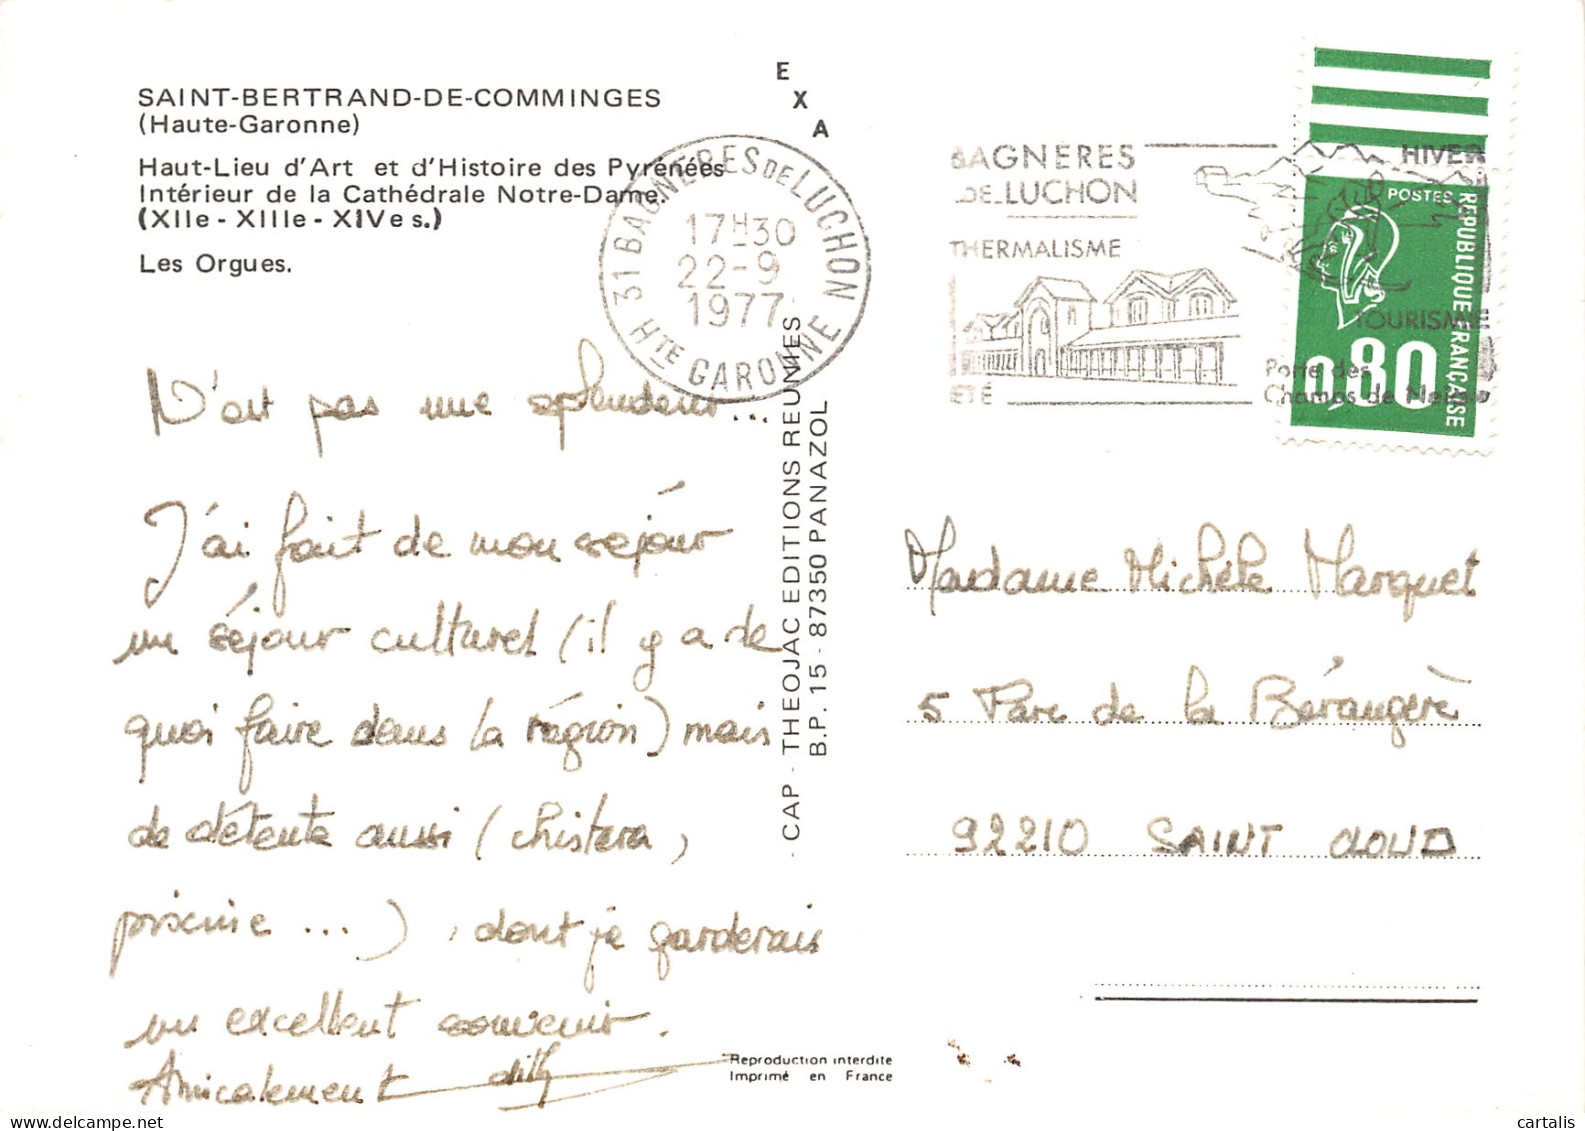 SAINT-BERTRAND-DE-COMMINGES
(Haute-Garonne)
Haut-Lieu d'Art et d'Histoire des Pyrénées
Intérieur de la Cathédrale Notre-Dame.
(XIIe - XIIIe - XIVe s.)
Les Orgues.
EXA
31 BAGNERES DE LUCHON
17H30
22-9
1977
HTE GARONNE
BAGNERES
DE LUCHON
THERMALISME
ETÉ
HIVER
TOURISME
Porte des
Champs de Neige
POSTES
REPUBLIQUE FRANÇAISE
0,80
N'est pas une splendeur...
J'ai fait de mon séjour
un séjour culturel (il y a de
quoi faire dans la région) mais
de détente aussi (chistera,
piscine ...), dont je garderais
un excellent souvenir.
Amicalement
CAP - THEOJAC EDITIONS REUNIES
B.P. 15 - 87350 PANAZOL
Madame Michèle Marquet
5 Parc de la Bérangère
92210 SAINT CLOUD
Reproduction interdite
Imprimé en France
cartalis